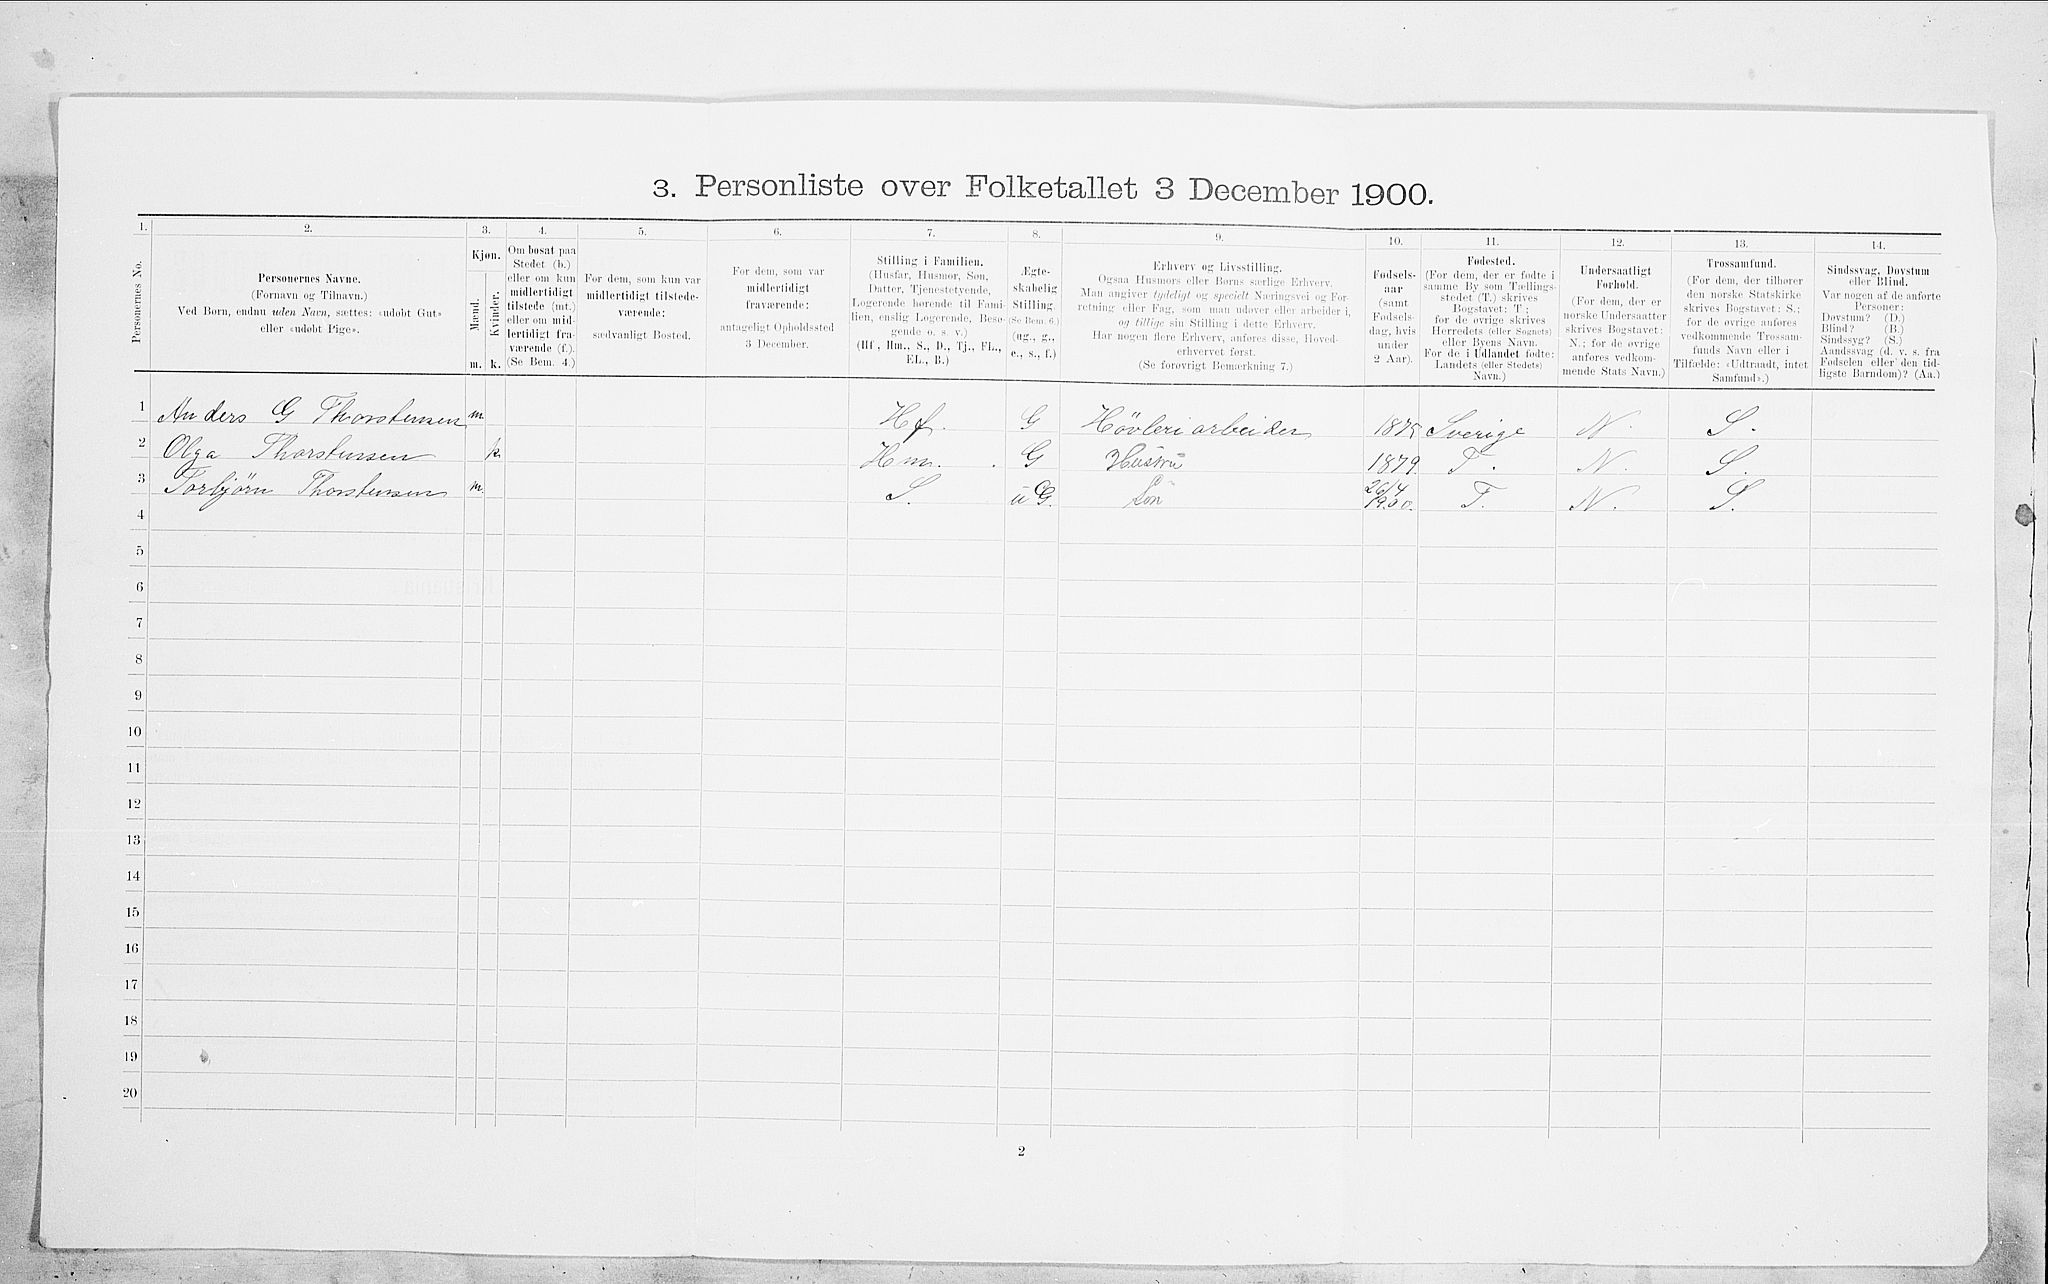 3. Personliste over Folketallet 3 December 1900.
1. 2. 3. 4. 5. 6. 7. 8. 9. 10. 11. 12. 13. 14.
Personernes No.
Personernes Navne.
(Fornavn og Tilnavn.)
Ved Børn, endnu uden Navn, sættes: «udøbt Gut»
eller «udøbt Pige».
Kjøn.
Mænd.
Kvinder.
m. k.
Om bosat paa
Stedet (b.)
eller om kun
midlertidigt
tilstede (mt.)
eller om mid-
lertidigt fra-
værende (f.).
(Se Bem. 4.)
For dem, som kun var
midlertidigt tilstede-
værende:
sædvanligt Bosted.
For dem, som var
midlertidigt
fraværende:
antageligt Opholdssted
3 December.
Stilling i Familien.
(Husfar, Husmor, Søn,
Datter, Tjenestetyende,
Logerende hørende til Fami-
lien, enslig Logerende, Besø-
gende o. s. v.)
(Hf., Hm., S., D., Tj., FL.,
EL., B.)
Ægte-
skabelig
Stilling.
(Se Bem. 6.)
(ug., g.,
e., s., f.)
Erhverv og Livsstilling.
Ogsaa Husmors eller Børns særlige Erhverv.
Man angiver tydeligt og specielt Næringsvei og For-
retning eller Fag, som man udøver eller arbeider i,
og tillige sin Stilling i dette Erhverv.
Har nogen flere Erhverv, anføres disse, Hoved-
erhvervet først.
(Se forøvrigt Bemærkning 7.)
Fødsels-
aar
(samt
Fødsels-
dag, hvis
under
2 Aar).
Fødested.
(For dem, der er fødte i
samme By som Tællings-
stedet (T.) skrives
Bogstavet: T.;
for de øvrige skrives
Herredets (eller Sognets)
eller Byens Navn.
For de i Udlandet fødte:
Landets (eller Stedets)
Navn.)
Undersaatligt
Forhold.
(For dem, der er
norske Undersaatter
skrives Bogstavet:
N.; for de øvrige
anføres vedkom-
mende Stats Navn.)
Trossamfund.
(For dem, der tilhører
den norske Statskirke
skrives Bogstavet: S.;
for de øvrige anføres
vedkommende Trossam-
funds Navn eller i
Tilfælde: «Udtraadt, intet
Samfund».)
Sindssvag, Døvstum
eller Blind.
Var nogen af de anførte
Personer:
Døvstum? (D.)
Blind? (B.)
Sindssyg? (S.)
Aandssvag (d. v. s. fra
Fødselen eller den tid-
ligste Barndom)? (Aa.)
1 Anders G Thorstensen m. Hf. G Hövleriarbeider 1875 Sverige N. S.
2 Olga Thorstensen k. Hm. G Hustru 1879. T. N. S.
3 Torbjörn Thorstensen m. S. uG. Sön 26/4 1900. T. N. S.
4
5
6
7
8
9
10
11
12
13
14
15
16
17
18
19
20
2